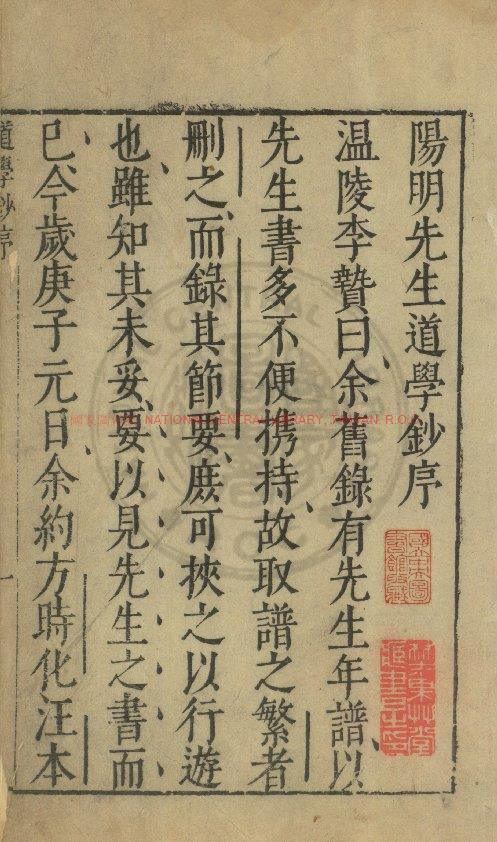 陽明先生道學鈔序
温陵李贄曰余舊錄有先生年譜以
先生書多不便携持故取譜之繁者
刪之而錄其節要庶可挾之以行遊
也雖知其未妥要以見先生之書而
已今歲庚子元日余約方時化汪本
道學鈔序
一
國家圖書館 NATIONAL CENTRAL LIBRARY, TAIWAN, R.O.C
國立中央圖書館收藏